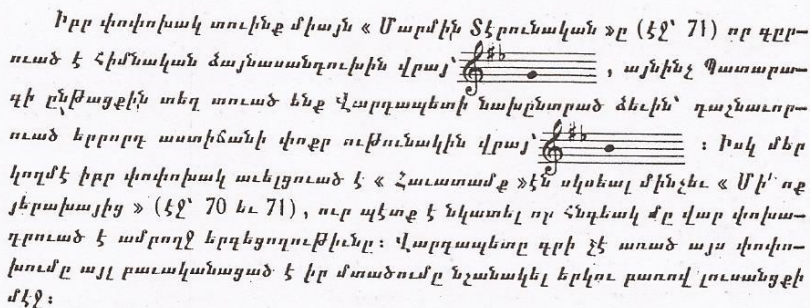 Իբր փոփոխակ տուինք միայն « Մարմին Տէրունական »ը (էջ՝ 71) որ գըր–
ուած է Հիմնական ձայնասանդուխին վրայ՝ , այնինչ Պատարա–
գի ընթացքին տեղ տուած ենք Վարդապետի նախընտրած ձեւին՝ դաշնաւոր–
ուած երրորդ աստիճանի փոքր ութունակին վրայ՝ : Իսկ մեր
կողմէ իբր փոփոխակ աւելցուած է « Հաւատամք »էն սկսեալ մինչեւ « Մի՛ ոք
յերախայից » (էջ՝ 70 եւ 71), ուր պէտք է նկատել որ հնդեակ մը վար փոխա–
դրուած է ամբողջ երգեցողութիւնը: Վարդապետը գրի չէ առած այս փոփո–
խումը այլ բաւականացած է իր մտածումը նշանակել երկու բառով լուսանցքի
մէջ: